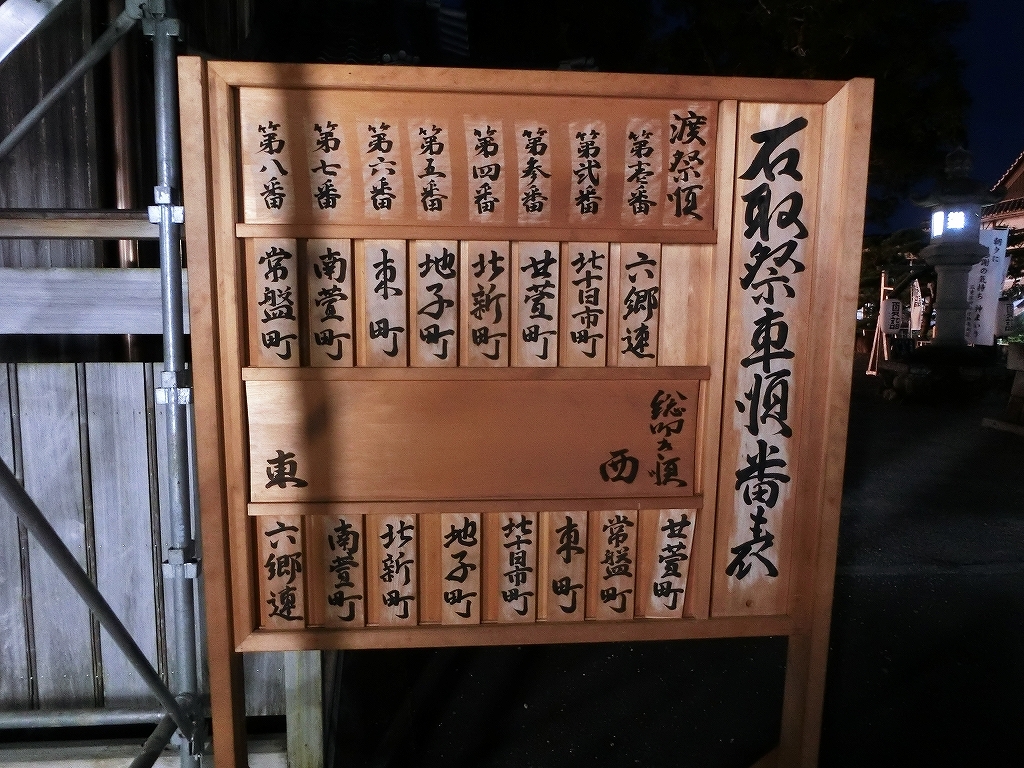 石取祭車順番表
渡祭順
第壱番
第弐番
第参番
第四番
第五番
第六番
第七番
第八番
六郷連
北十日市町
廿萱町
北新町
地子町
東町
南萱町
常盤町
総叩き順
西
東
廿萱町
常盤町
東町
北十日市町
地子町
北新町
南萱町
六郷連